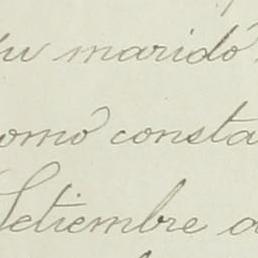 su marido
como consta
Setiembre d